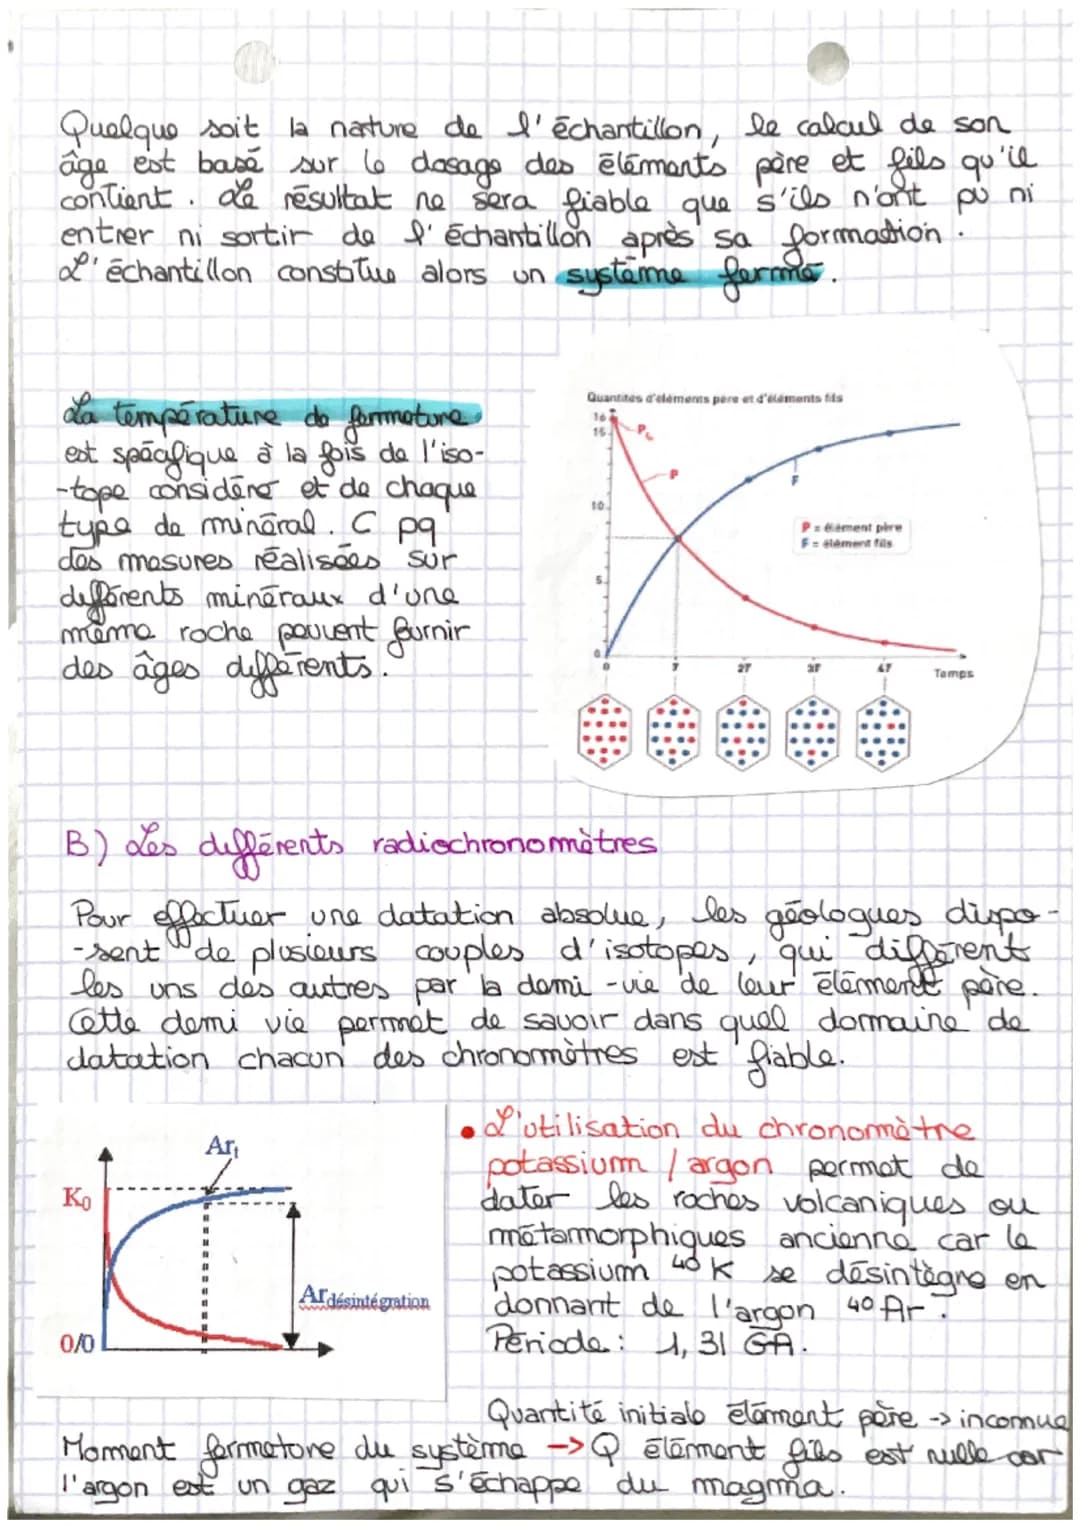 Quelque soit la nature de l'échantillon, le calcul de son
âge est basé sur le dosage des éléments père et fils qu'il
contient. Le résultat ne sera fiable que s'ils n'ont pu ni
entrer ni sortir de l'échantillon après sa formation.
L'échantillon constitue alors un système fermé.
La température de fermeture
est spécifique à la fois de l'iso-
-tope considéré et de chaque
type de minéral. C pq
des mesures réalisées sur
différents minéraux d'une
même roche peuvent fournir
des âges différents.
Quantités d'éléments père et d'éléments fils
16
15
P₀
P
F
10
P = élément père
F = élément fils
5
0
0 T 2T 3T 4T
Temps
B) Les différents radiochronomètres
Pour effectuer une datation absolue, les géologues dispo-
-sent de plusieurs couples d'isotopes, qui différent
les uns des autres par la demi-vie de leur élément père.
Cette demi vie permet de savoir dans quel domaine de
datation chacun des chronomètres est fiable.
Ar_t
K₀
Ar désintégration
0/0
• L'utilisation du chronomètre
potassium / argon permet de
dater les roches volcaniques ou
métamorphiques ancienne car le
potassium ⁴⁰K se désintègre en
donnant de l'argon ⁴⁰Ar.
Période : 1,31 GA.
Quantité initiale élément père -> inconnue
Moment fermeture du système -> Q élément fils est nulle car
l'argon est un gaz qui s'échappe du magma.